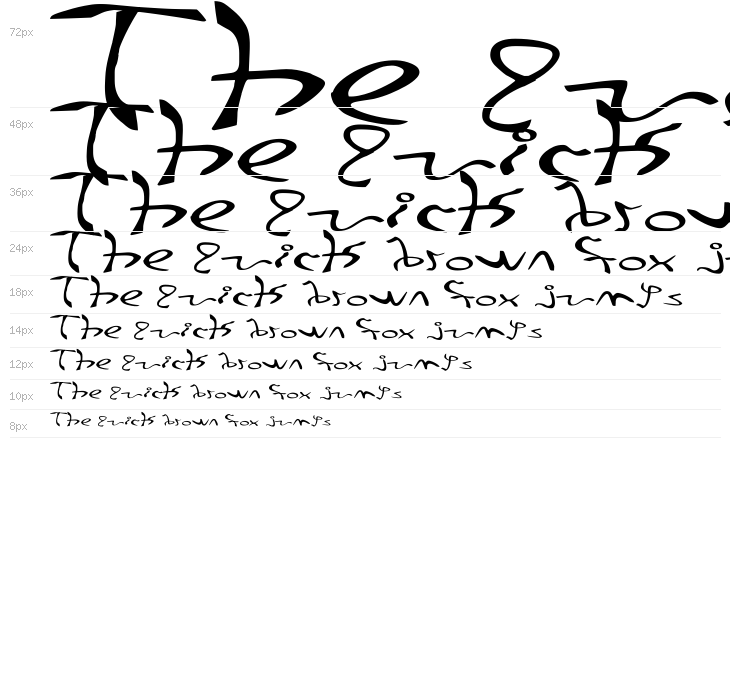 72px The Qu
48px The Quick
36px The Quick brow
24px The Quick brown fox j
18px The Quick brown fox jumps
14px The Quick brown fox jumps
12px The Quick brown fox jumps
10px The Quick brown fox jumps
8px The Quick brown fox jumps